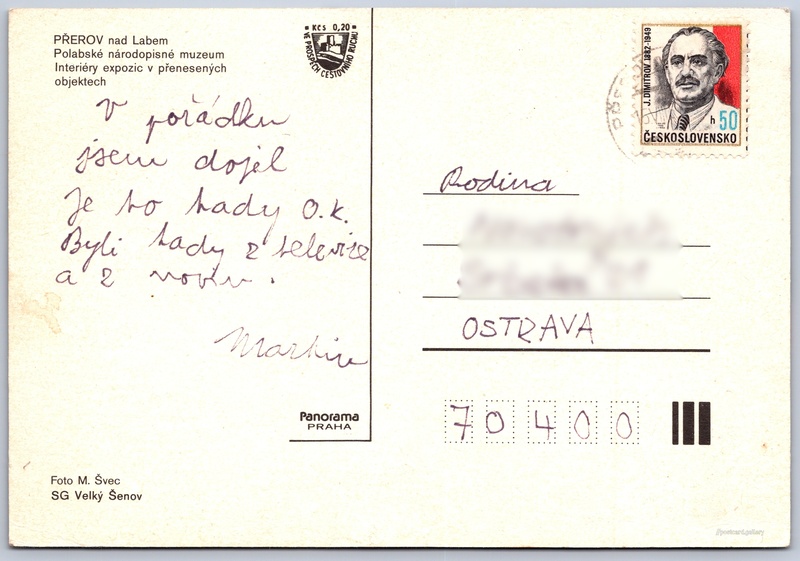 PŘEROV nad Labem
Polabské národopisné muzeum
Interiéry expozic v přenesených
objektech
Kčs 0,20
VE PROSPĚCH CESTOVNÍHO RUCHU
V pořádku
jsem dojel
Je to tady O.K.
Byli tady z televize
a z novin.
Martin
Panorama
PRAHA
Foto M. Švec
SG Velký Šenov
J. DIMITROV 1882-1949
h 50
ČESKOSLOVENSKO
Rodina
OSTRAVA
70400